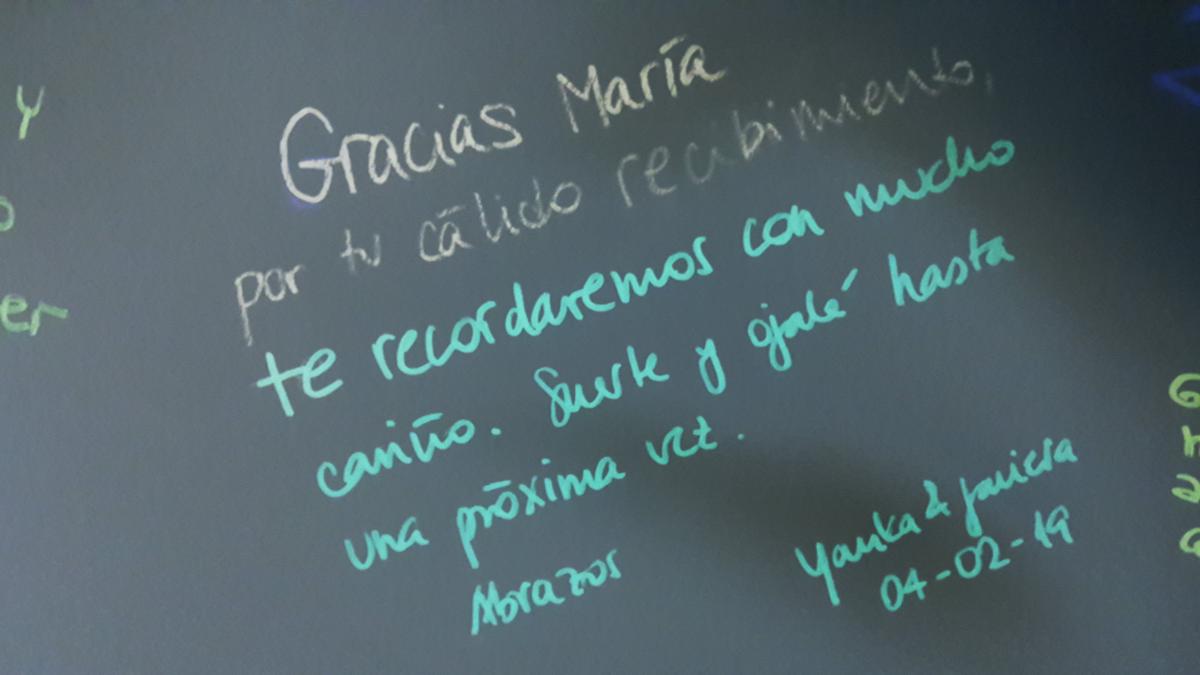 Gracias María
por tu cálido recibimiento,
te recordaremos con mucho
cariño. Suerte y ojalá hasta
una próxima vez.
Abrazos
Yanka & Javiera
04-02-19
y
o
er